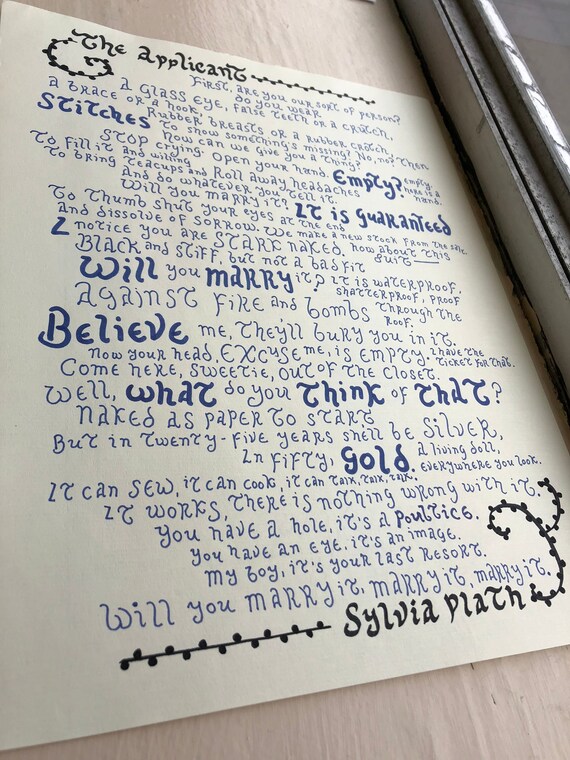 The Applicant
First, are you our sort of person?
do you wear
A Glass eye, false teeth or a crutch,
a brace or a hook,
Rubber breasts or a rubber crotch,
Stitches to show something's missing? No, no? Then
How can we give you a thing?
Stop crying. Open your hand. Empty? Empty. here is a hand.
To fill it and willing
To bring teacups and Roll away headaches
And do whatever you tell it.
Will you marry it? It is guaranteed
To thumb shut your eyes at the end
And dissolve of sorrow. We make a new stock from the salt.
I notice you are stark naked. how about this suit—
Black and stiff, but not a bad fit
Will you marry it? It is waterproof,
shatterproof, proof
Against fire and bombs through the roof.
Believe me, they'll bury you in it.
Now your head, excuse me, is empty. I have the ticket for that.
Come here, sweetie, out of the closet.
Well, what do you think of that?
Naked as paper to start
But in twenty-five years she'll be silver,
In fifty, gold. A living doll, everywhere you look.
It can sew, it can cook, it can talk, talk, talk.
It works, there is nothing wrong with it.
You have a hole, it's a poultice.
You have an eye, it's an image.
My boy, it's your last resort.
Will you marry it, marry it, marry it.
Sylvia Plath